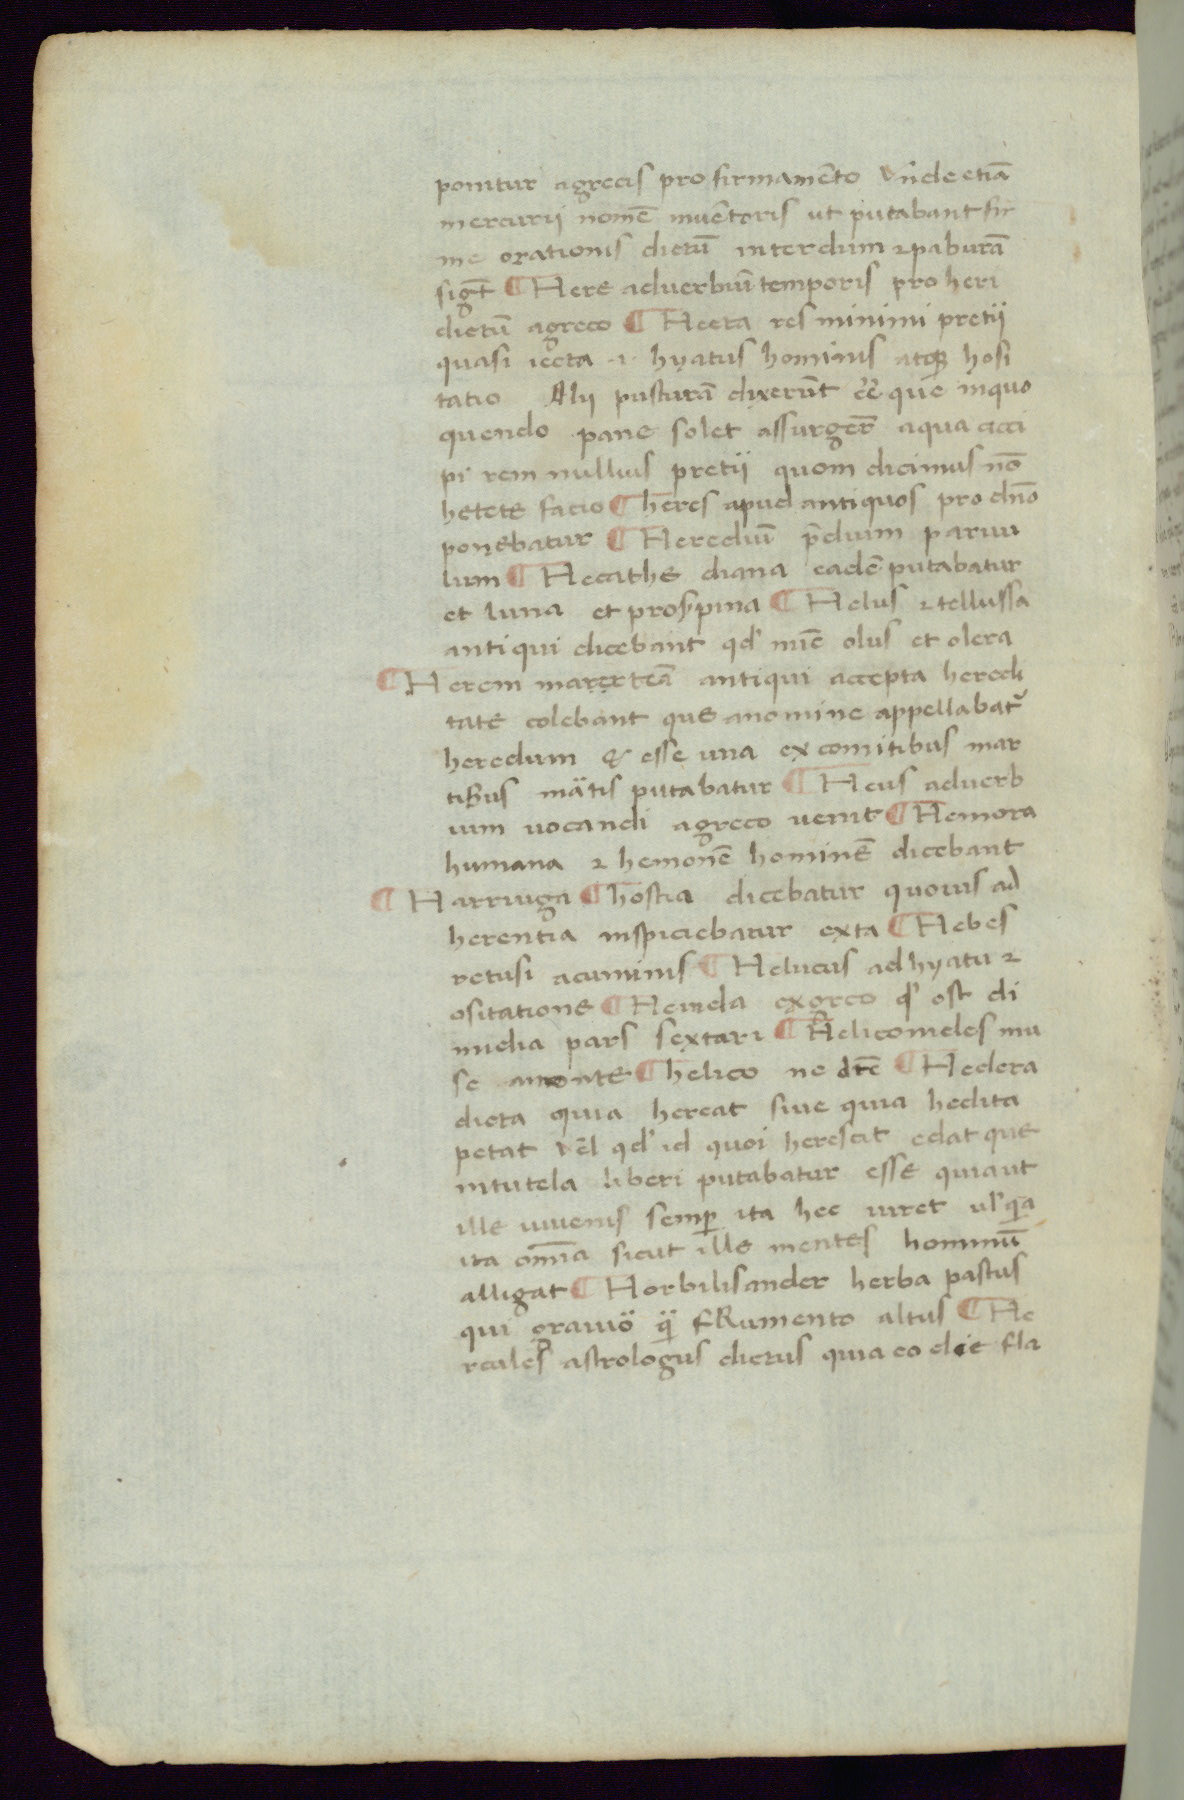 ponitur agrecis pro firmamẽto Vñde etiã
mercurij nomẽ inuẽtoris ut putabant fir
me orationis dictũ interdum ⁊ paburã
sigt̃ ¶ Here aduerbiũ temporis pro heri
dictũ agreco ¶ Hecta res minimi pretij
quasi iecta .i. hyatus hominis atqꝫ hosi
tatio Alij pusturã dixerũt eẽ que inquo
quendo pane solet assurger̃ aqua acci
pi rem nullius pretij quom dicimus nõ
hetete facio ¶ heres apud antiquos pro dño
ponebatur ¶ Herediũ p̃dium paruu
lum ¶ Hecathe diana eadẽ putabatur
et luna et proserpina ¶ Helus ⁊ tellussa
antiqui dicebant qd' nũc olus et olera
¶ Herem marerteã antiqui accepta heredi
tate colebant que anomine appellabat̃
heredum & esse una ex comitibus mar
tibus mãtis putabatur ¶ Heus aduerb
ium uocandi agreco uenit ¶ Hemora
humana ⁊ hemonẽ hominẽ dicebant
¶ Harriuga ¶ hostia dicebatur quoius ad
herentia inspiciebatur exta ¶ Hebes
retusi acuminis ¶ Helucus ad hyatu ⁊
ositatione ¶ Hemda exgreco qd' est di
midia pars sextari ¶ Heliconides mu
se amonte ¶ helico ne dictẽ ¶ Hedera
dicta quia hereat siue quia hedita
petat uẽl qd' id quoi herescit edat que
intutela liberi putabatur esse quiaut
ille iuuenis semꝑ ita hec uiret ul' qia
ita omĩa sicut ille mentes hominũ
alligat ¶ Horbilisander herba pastus
qui grauiõ q̃ fRumento altus ¶ He
reales astrologus dictus quia eo die fla